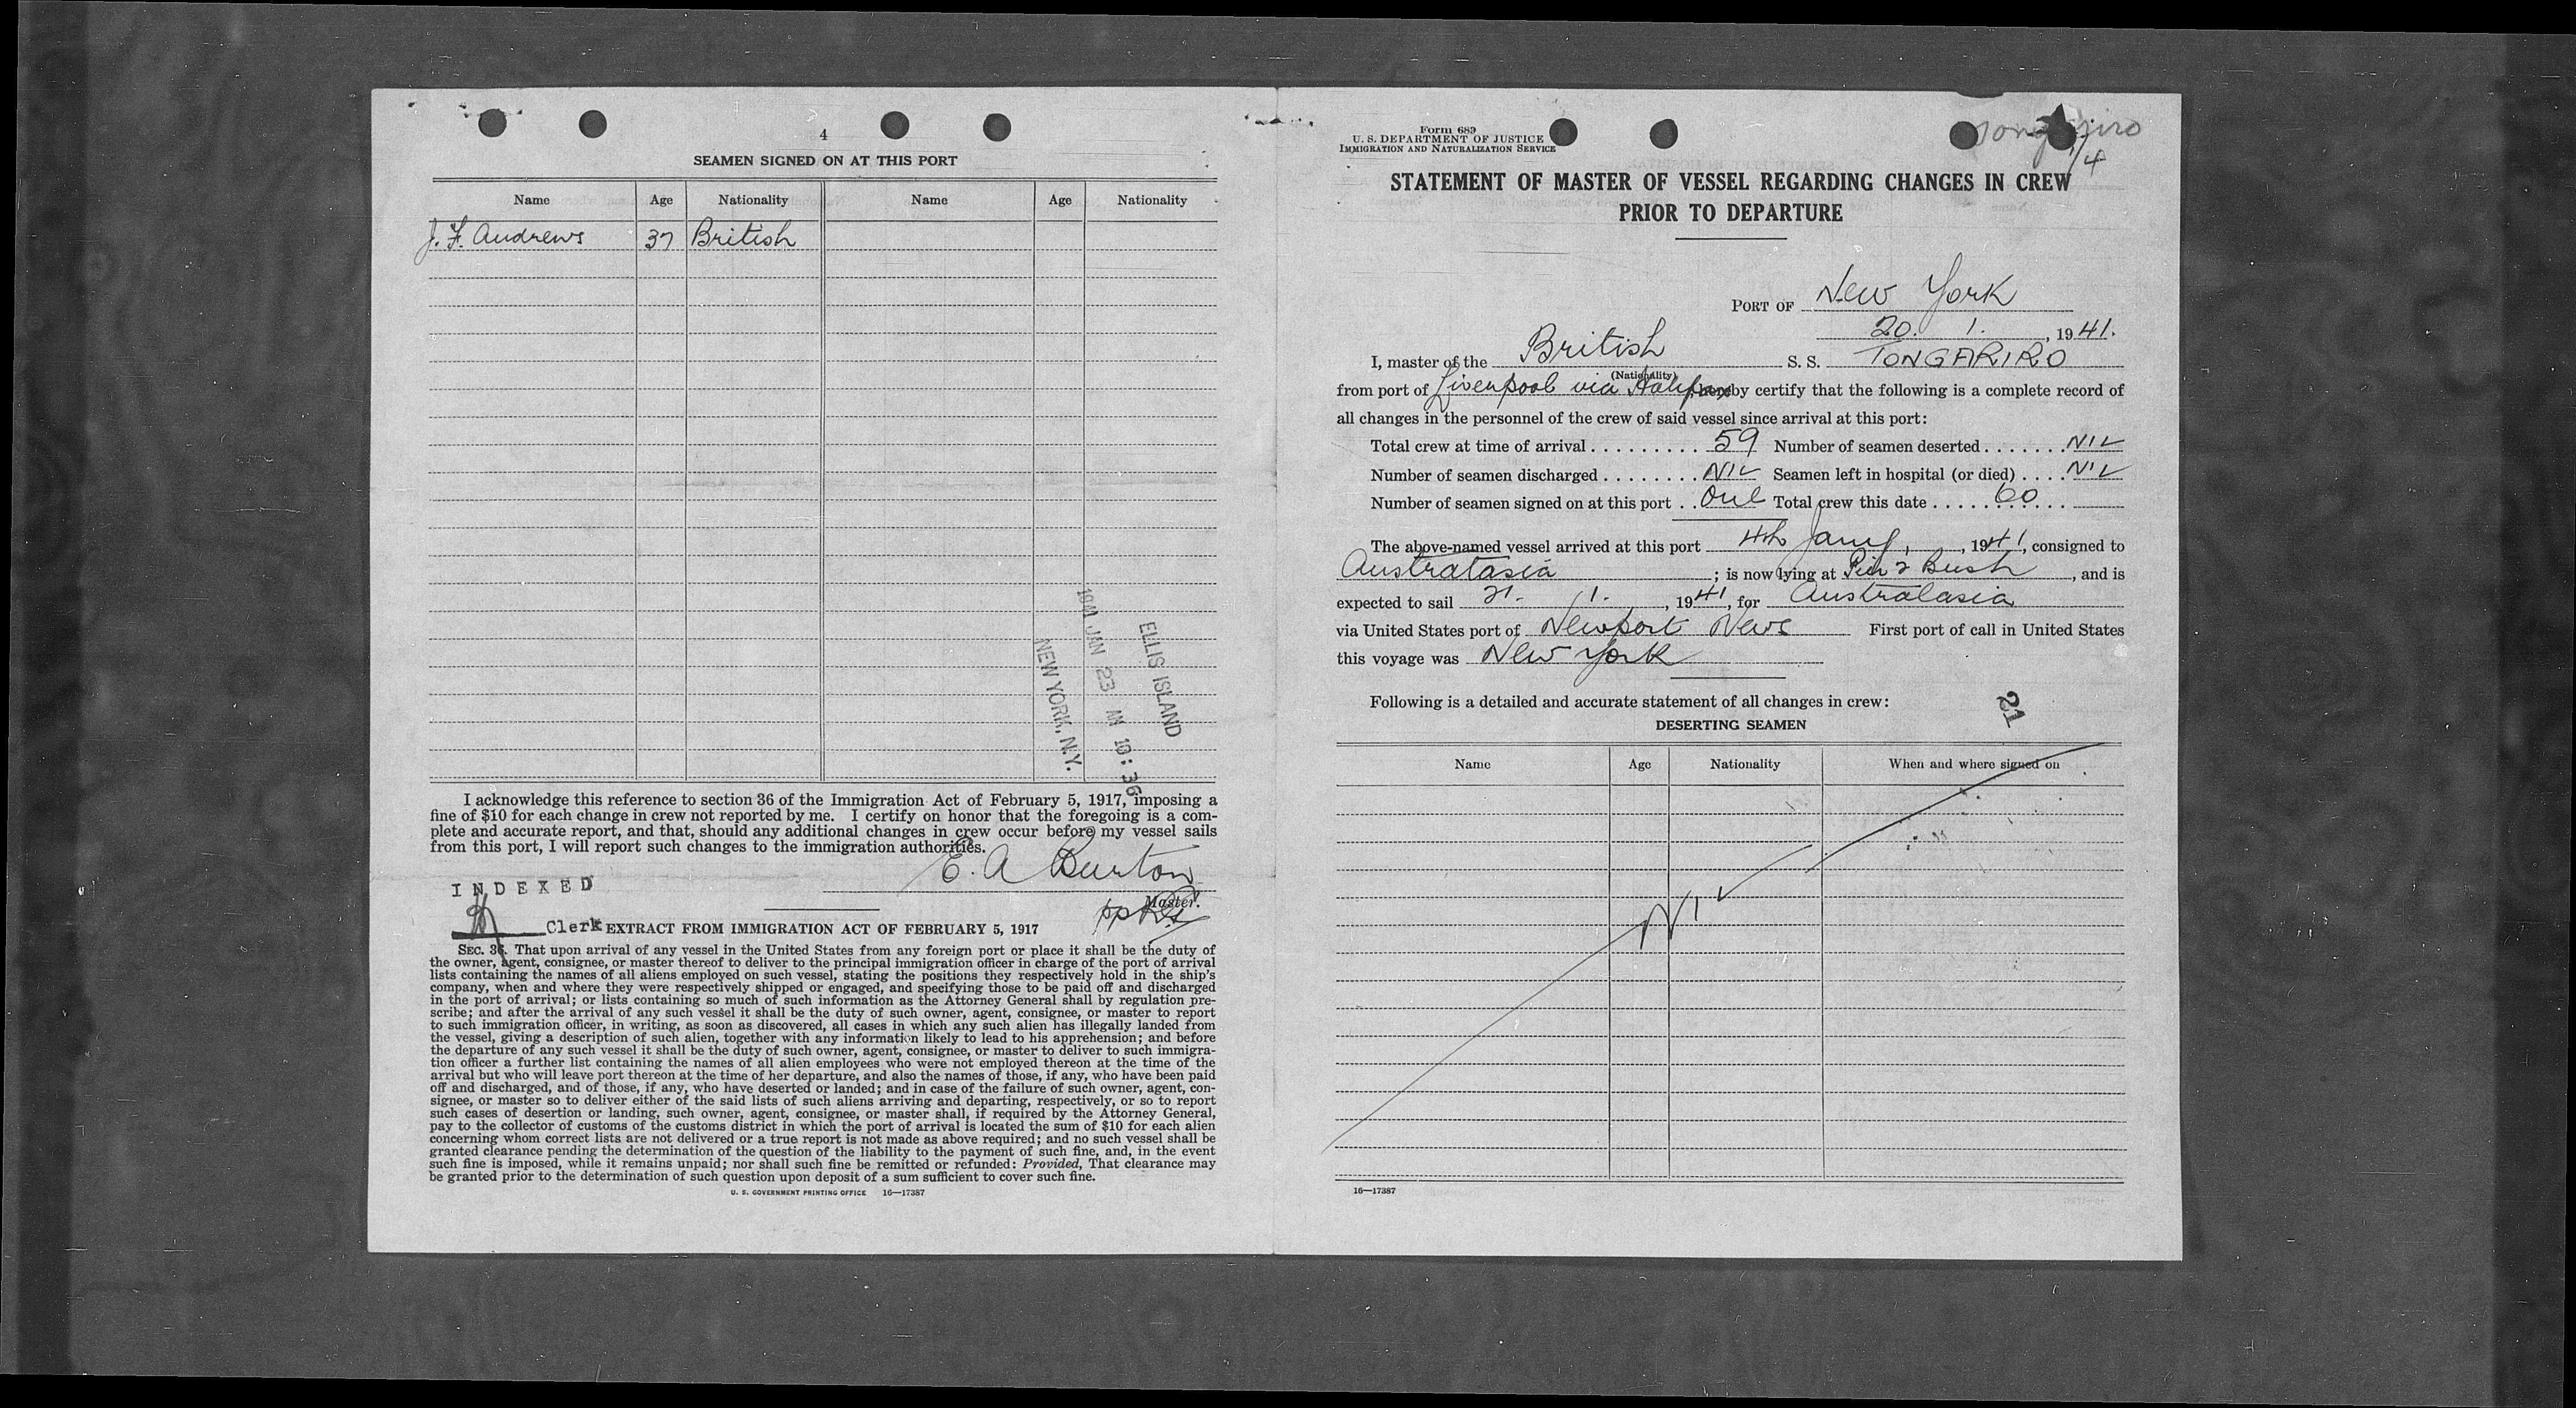 4
SEAMEN SIGNED ON AT THIS PORT
Name Age Nationality Name Age Nationality
J. F. Andrews 37 British
ELLIS ISLAND
1941 JAN 23 AM 10:36
NEW YORK, N.Y.
I acknowledge this reference to section 36 of the Immigration Act of February 5, 1917, imposing a
fine of $10 for each change in crew not reported by me. I certify on honor that the foregoing is a com-
plete and accurate report, and that, should any additional changes in crew occur before my vessel sails
from this port, I will report such changes to the immigration authorities.
E. A Burton
Master.
INDEXED
Clerk
EXTRACT FROM IMMIGRATION ACT OF FEBRUARY 5, 1917
SEC. 36. That upon arrival of any vessel in the United States from any foreign port or place it shall be the duty of
the owner, agent, consignee, or master thereof to deliver to the principal immigration officer in charge of the port of arrival
lists containing the names of all aliens employed on such vessel, stating the positions they respectively hold in the ship's
company, when and where they were respectively shipped or engaged, and specifying those to be paid off and discharged
in the port of arrival; or lists containing so much of such information as the Attorney General shall by regulation pre-
scribe; and after the arrival of any such vessel it shall be the duty of such owner, agent, consignee, or master to report
to such immigration officer, in writing, as soon as discovered, all cases in which any such alien has illegally landed from
the vessel, giving a description of such alien, together with any information likely to lead to his apprehension; and before
the departure of any such vessel it shall be the duty of such owner, agent, consignee, or master to deliver to such immigra-
tion officer a further list containing the names of all alien employees who were not employed thereon at the time of the
arrival but who will leave port thereon at the time of her departure, and also the names of those, if any, who have been paid
off and discharged, and of those, if any, who have deserted or landed; and in case of the failure of such owner, agent, con-
signee, or master so to deliver either of the said lists of such aliens arriving and departing, respectively, or so to report
such cases of desertion or landing, such owner, agent, consignee, or master shall, if required by the Attorney General,
pay to the collector of customs of the customs district in which the port of arrival is located the sum of $10 for each alien
concerning whom correct lists are not delivered or a true report is not made as above required; and no such vessel shall be
granted clearance pending the determination of the question of the liability to the payment of such fine, and, in the event
such fine is imposed, while it remains unpaid; nor shall such fine be remitted or refunded: Provided, That clearance may
be granted prior to the determination of such question upon deposit of a sum sufficient to cover such fine.
U. S. GOVERNMENT PRINTING OFFICE 16—17387
Form 689
U. S. DEPARTMENT OF JUSTICE
IMMIGRATION AND NATURALIZATION SERVICE
1/4
STATEMENT OF MASTER OF VESSEL REGARDING CHANGES IN CREW
PRIOR TO DEPARTURE
PORT OF New York
20. 1. , 1941.
I, master of the British S. S. TONGARIRO
(Nationality)
from port of Liverpool via Halifax hereby certify that the following is a complete record of
all changes in the personnel of the crew of said vessel since arrival at this port:
Total crew at time of arrival ......... 59 Number of seamen deserted ....... NIL
Number of seamen discharged ........ NIL Seamen left in hospital (or died) .... NIL
Number of seamen signed on at this port .. One Total crew this date .......... 60
The above-named vessel arrived at this port 4th Jany, , 1941, consigned to
Australasia ; is now lying at Pier 2 Bush , and is
expected to sail 21. 1. , 1941, for Australasia
via United States port of Newport News First port of call in United States
this voyage was New York
Following is a detailed and accurate statement of all changes in crew:
21
DESERTING SEAMEN
Name Age Nationality When and where signed on
NIL
16—17387